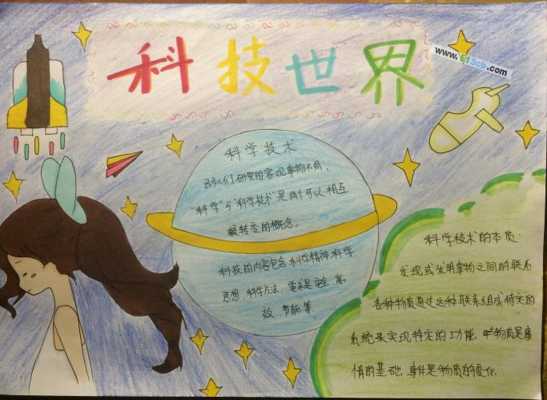 科技世界
科学技术
研究的客观事物不同,
"科学"与"科学技术"是两个可以相互
转变的概念。
科技的内容包含科学精神 科学
思想 科学方法
节能 等
科学技术的本质:
发现或发明事物之间的联系
各种物质通过这种联系组成特定的
系统来实现特定的功能
的基础 事件是物质的变化